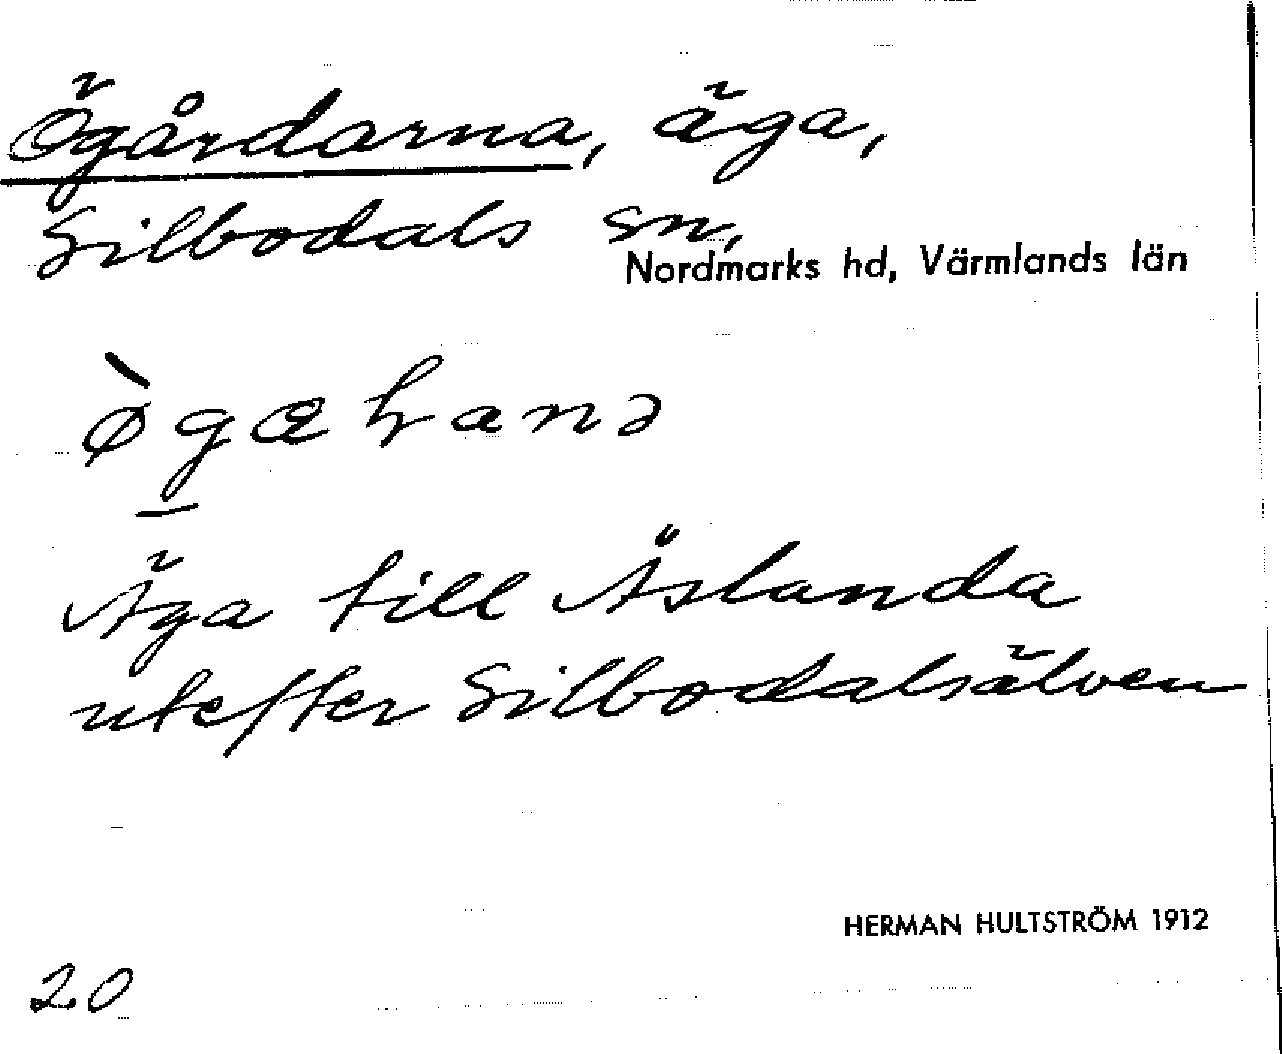 Ögårdarna, äga,
Silbodals sn,
Nordmarks hd, Värmlands län
Äga till Åslanda
utefter Silbodalsälven
HERMAN HULTSTRÖM 1912
20